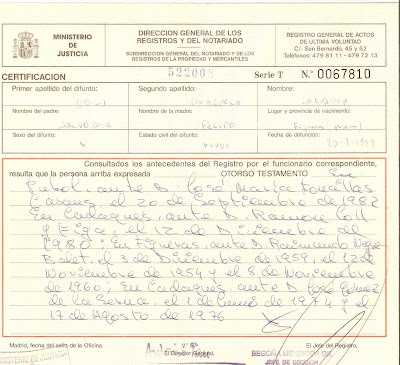 MINISTERIO
DE
JUSTICIA
DIRECCION GENERAL DE LOS
REGISTROS Y DEL NOTARIADO
SUBDIRECCION GENERAL DEL NOTARIADO Y DE LOS
REGISTROS DE LA PROPIEDAD Y MERCANTILES
REGISTRO GENERAL DE ACTOS
DE ULTIMA VOLUNTAD
C/. San Bernardo, 45 y 62
Teléfonos: 479 81 11 - 479 72 13
CERTIFICACION
522003
Serie T N.º 0067810
Primer apellido del difunto:
Segundo apellido:
Nombre:
DALI
DOMENECH
SALVADOR
Nombre del padre:
Nombre de la madre:
Lugar y provincia de nacimiento:
SALVADOR
FELIPA
Sexo del difunto:
Estado civil del difunto:
Fecha de defunción:
V
VIUDO
23-1-1989
Consultados los antecedentes del Registro por el funcionario correspondiente,
resulta que la persona arriba expresada OTORGO TESTAMENTO En
Pubol, ante D. José María Foncillas
Casaus, el 20 de Septiembre de 1982
En Cadaqués, ante D. Ramon Coll
y Figa, el 12 de Diciembre de
1980; En Figueras, ante D. Raimundo Negre
Balet, el 3 de Diciembre de 1959, el 12 de
Noviembre de 1954 y el 8 de Noviembre
de 1960; En Cadaqués ante D. José Gomez
de la Serna, el 1 de Junio de 1974 y el
17 de Agosto de 1976
Madrid, fecha del sello de la Oficina.
V.º B.º
El Director General,
El Jefe del Registro,
MINISTERIO DE JUSTICIA
BEGOÑA MENDICOTE GIL
JEFE DE SECCION